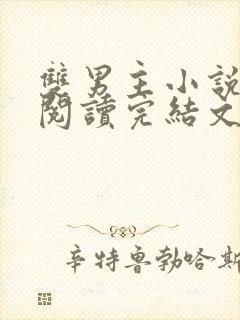 雙男主小說
閱讀完結文
辛特魯勃哈斯